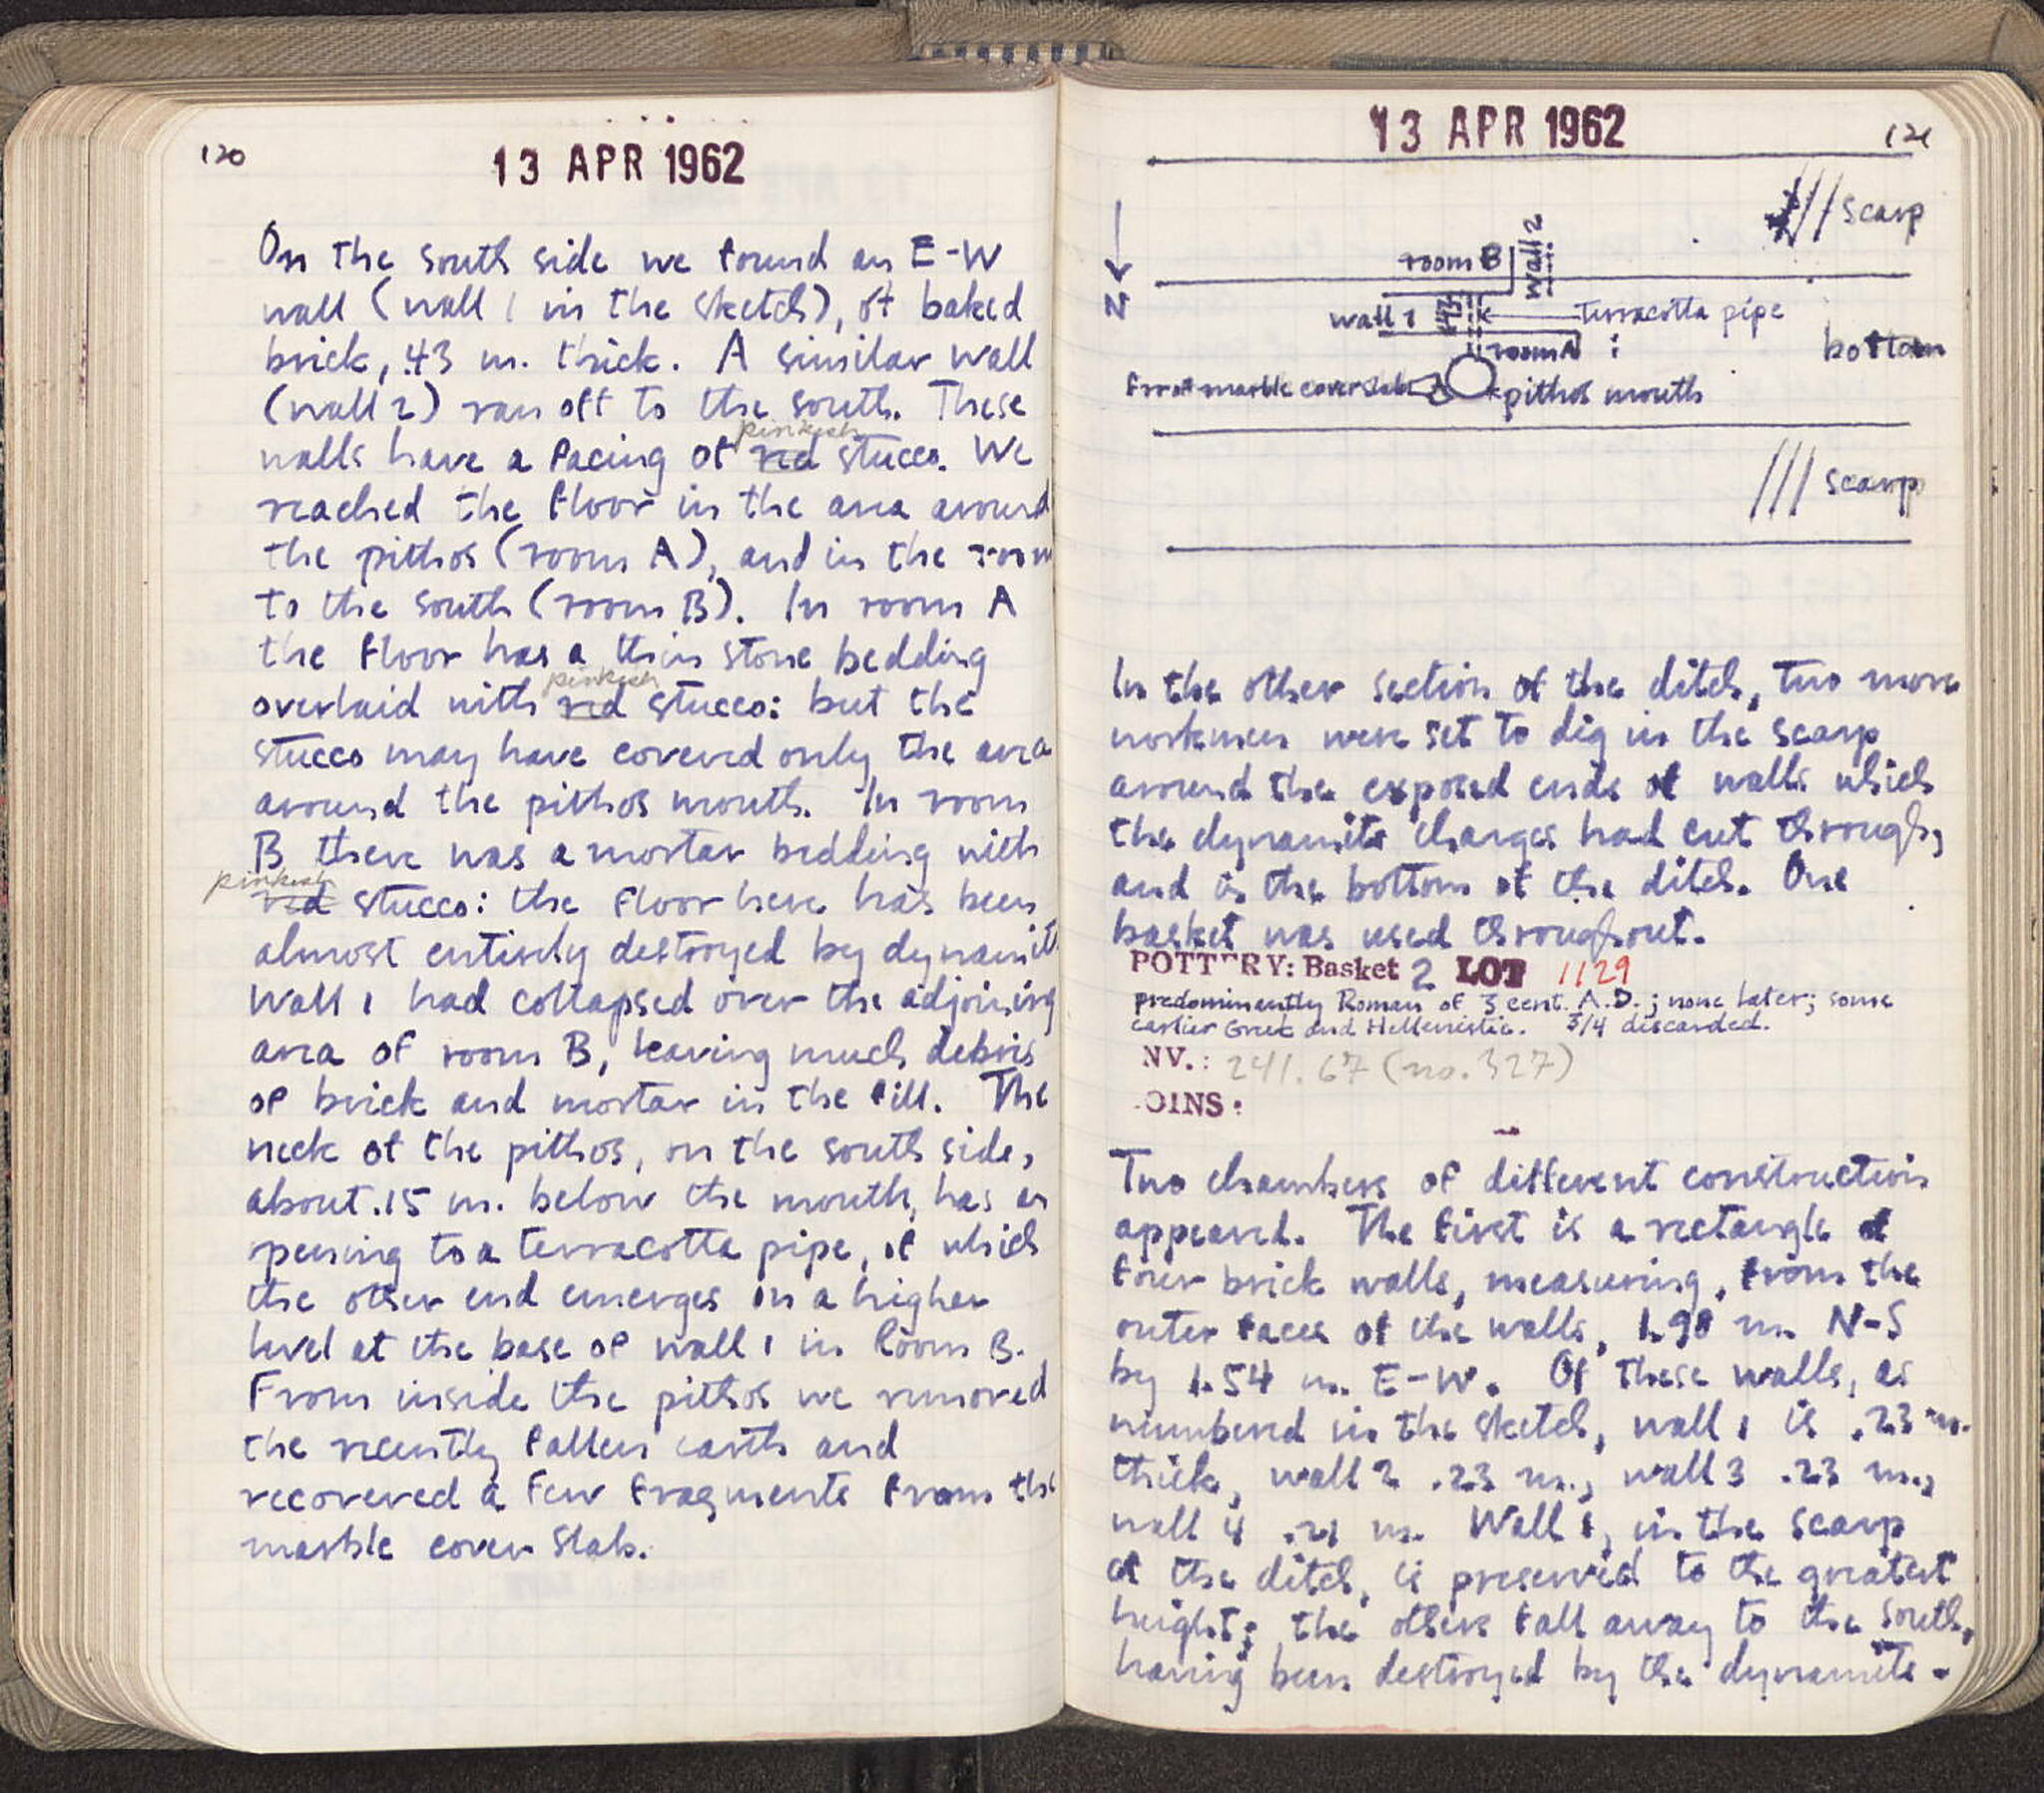 120
13 APR 1962
On the south side we found an E-W
wall (wall 1 in the sketch), of baked
brick, .43 m. thick. A similar wall
(wall 2) ran off to the south. These
pinkish
walls have a facing of red stucco. We
reached the floor in the area around
the pithos (room A), and in the room
to the south (room B). In room A
the floor has a thin stone bedding
pinkish
overlaid with red stucco: but the
stucco may have covered only the area
around the pithos mouth. In room
B there was a mortar bedding with
pinkish
red stucco: the floor here has been
almost entirely destroyed by dynamit
Wall 1 had collapsed over the adjoining
area of room B, leaving much debris
of brick and mortar in the fill. The
neck of the pithos, on the south side,
about .15 m. below the mouth, has an
opening to a terracotta pipe, of which
the other end emerges on a higher
level at the base of wall 1 in Room B.
From inside the pithos we removed
the recently fallen earth and
recovered a few fragments from the
marble cover slab.
13 APR 1962
121
scarp
N
room B
wall 2
wall 1
.43
terracotta pipe
room A
bottom
fr. of marble cover slab
pithos mouth
scarp
In the other section of the ditch, two more
workmen were set to dig in the scarp
around the exposed ends of walls which
the dynamite charges had cut through,
and in the bottom of the ditch. One
basket was used throughout.
POTTERY: Basket 2 LOT 1129
predominantly Roman of 3 cent. A.D.; none later; some
earlier Greek and Hellenistic. 3/4 discarded.
NV.: 241.67 (no. 327)
OINS:
Two chambers of different construction
appeared. The first is a rectangle of
four brick walls, measuring, from the
outer faces of the walls, 1.98 m. N-S
by 1.54 m. E-W. Of these walls, as
numbered in the sketch, wall 1 is .23 m.
thick, wall 2 .23 m., wall 3 .23 m.,
wall 4 .21 m. Wall 1, in the scarp
of the ditch, is preserved to the greatest
height; the others fall away to the south,
having been destroyed by the dynamite.